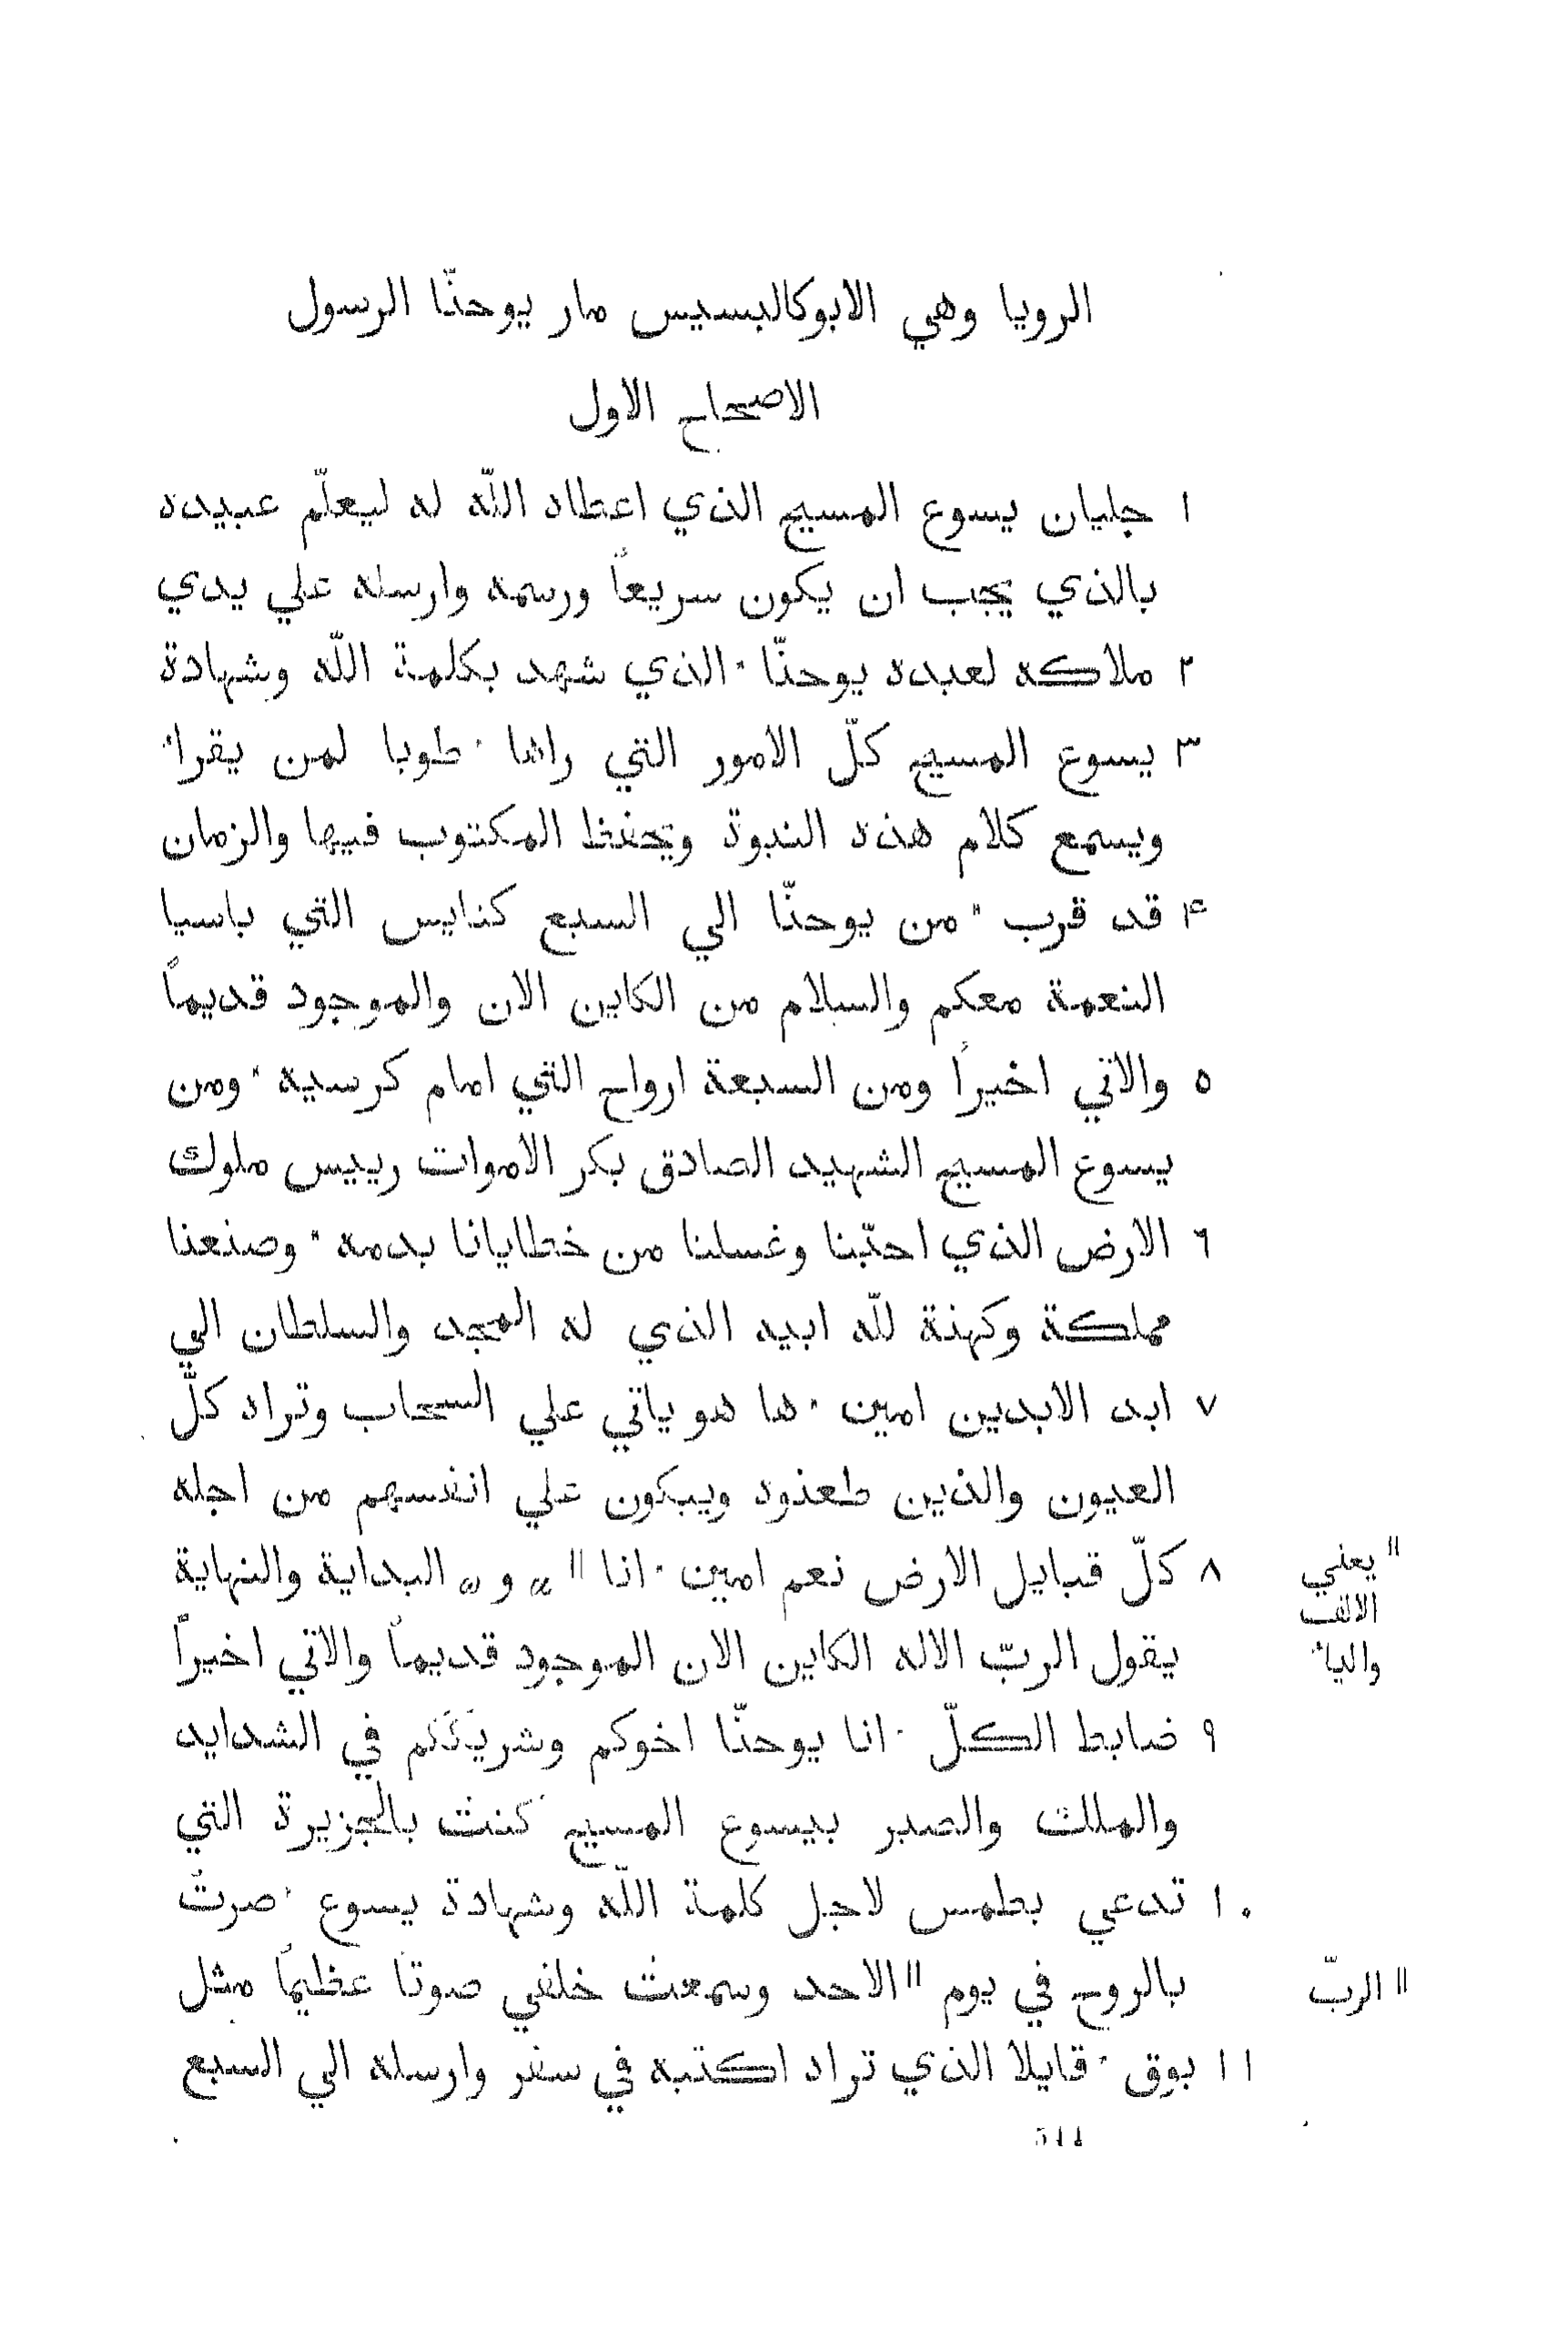 الرويا وهي الابوكالبسيس مار يوحنّا الرسول
الاصحاح الاول
١ جليان يسوع المسيح الذي اعطاه اللّه له ليعلّم عبيده
بالذي يجب ان يكون سريعاً ورسمه وارسله علي يدي
٢ ملاكه لعبده يوحنّا · الذي شهد بكلمة اللّه وشهادة
٣ يسوع المسيح كلّ الامور التي راها · طوبا لمن يقراء
ويسمع كلام هذه النبوة ويحفظ المكتوب فيها والزمان
۴ قد قرب · من يوحنّا الي السبع كنايس التي باسيا
النعمة معكم والسلام من الكاين الان والموجود قديماً
٥ والاتي اخيراً ومن السبعة ارواح التي امام كرسيه · ومن
يسوع المسيح الشهيد الصادق بكر الاموات رييس ملوك
٦ الارض الذي احبّنا وغسلنا من خطايانا بدمه · وصنعنا
مملكة وكهنة للّه ابيه الذي له المجد والسلطان الي
٧ ابد الابديين امين · ها هو ياتي علي السحاب وتراه كلّ
العيون والذين طعنوه ويبكون علي انفسهم من اجله
٨ كلّ قبايل الارض نعم امين · انا " و البداية والنهاية
" يعني
الالف
والياء
يقول الربّ الاله الكاين الان الموجود قديماً والاتي اخيراً
٩ ضابط الكلّ · انا يوحنّا اخوكم وشريككم في الشدايد
والملك والصبر بيسوع المسيح كنت بالجزيرة التي
١٠ تدعي بطمس لاجل كلمة اللّه وشهادة يسوع · صرتُ
بالروح في يوم "الاحد وسمعت خلفي صوتاً عظيماً مثل
" الربّ
١١ بوق · قايلا الذي تراه اكتبه في سفر وارسله الي السبع